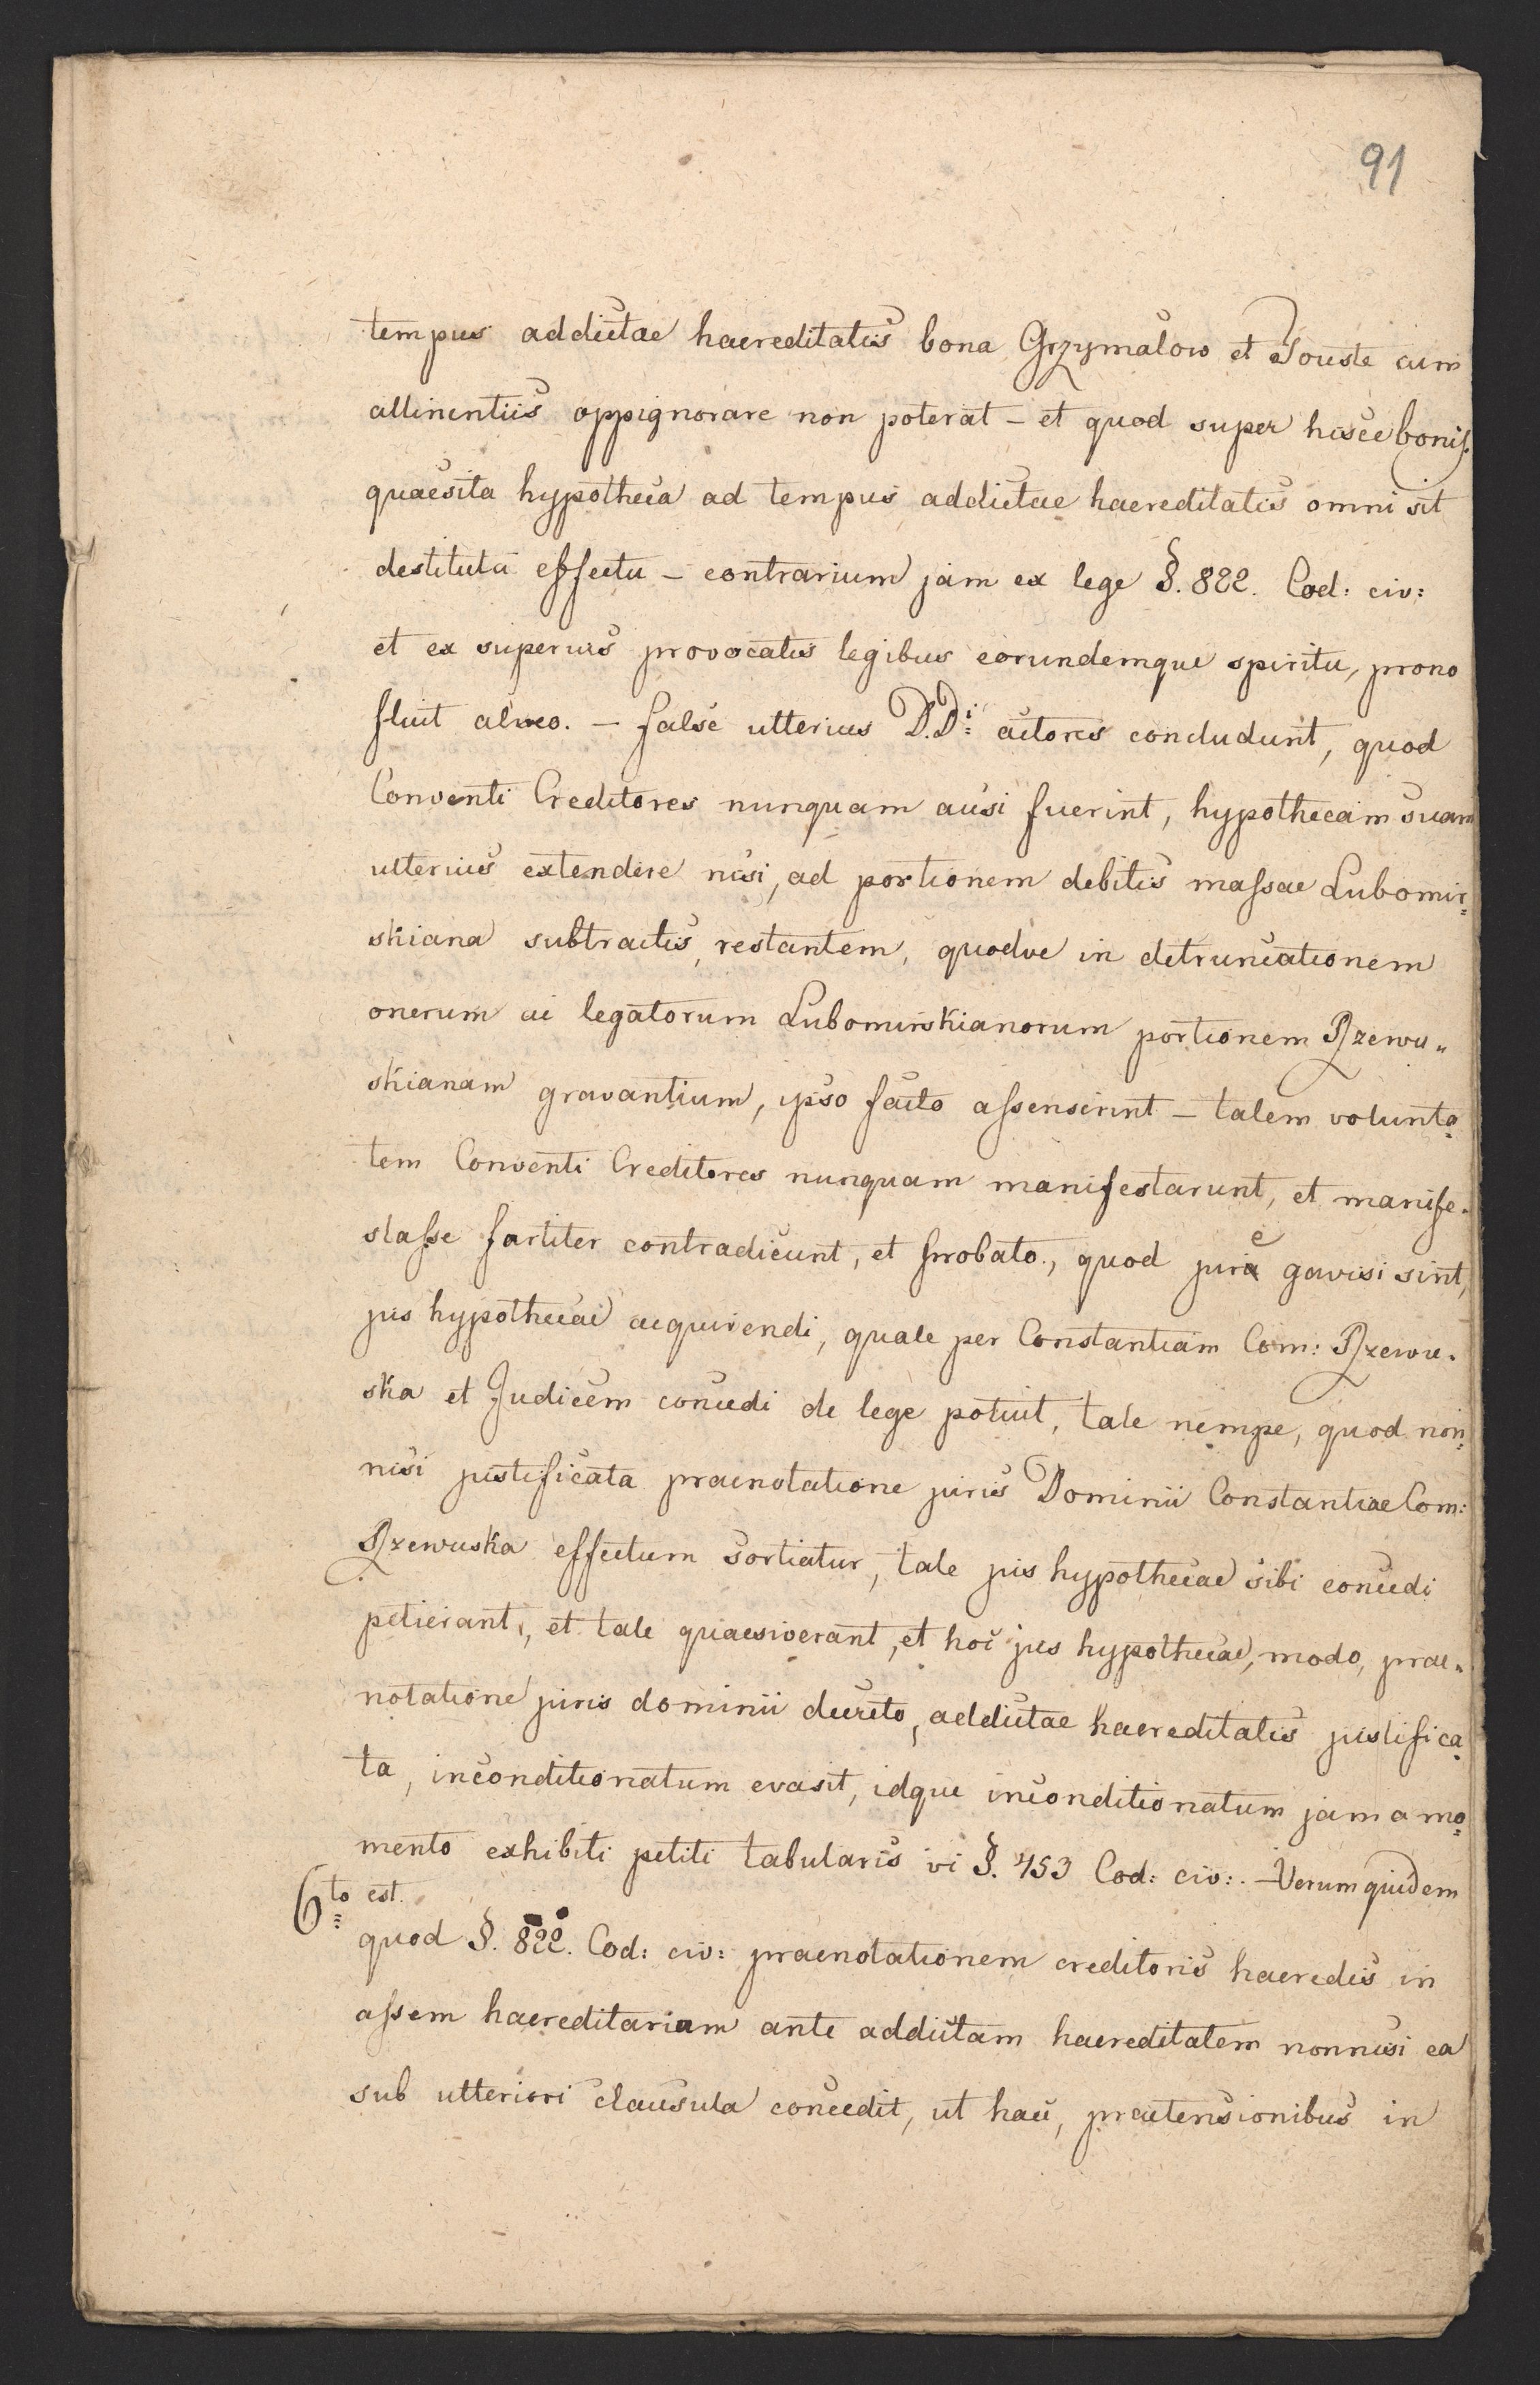 91
tempus addictae haereditatis bona Grzymalow et Touste cum
attinentiis oppignorare non poterat – et quod super hisce bonis
quaesita hypotheca ad tempus addictae haereditatis omni sit
destituta effectu – contrarium jam ex lege §. 822. Cod: civ:
et ex superius provocatis legibus eorundemque spiritu, prono
fluit alveo. – false utterius D.Di: actores concludunt, quod
Conventi Creditores nunquam ausi fuerint, hypothecam suam
utterius extendere nisi, ad portionem debitis massae Lubomir=
skiana subtractis, restantem, quodve in detruncationem
onerum ac legatorum Lubomirskianorum portionem Rzewu„
skianam gravantium, ipso facto assenserint – talem volunta=
tem Conventi Creditores nunquam manifestarunt, et manife.
stasse fortiter contradicunt, et probato, quod jure gavisi sint,
jus hypothecae acquirendi, quale per Constantiam Com: Rzewu.
ska et Judicem concedi de lege potuit, tale nempe, quod non=
nisi justificata praenotatione juris Dominii Constantiae Com:
Rzewuska effectum sortiatur, tale jus hypothecae sibi concedi
petierant, et tale quaesiverant, et hoc jus hypothecae, modo, prae„
notatione juris dominii decreto, addictae haereditatis justifica=
ta, inconditionatum evasit, idque inconditionatum jam a mo=
mento exhibiti petiti tabularis vi §. 453 Cod: civ:. – Verum quidem
6to est.
quod §. 822. Cod: civ: praenotationem creditoris haeredis in
assem haereditariam ante addictam haereditatem nonnisi ea
sub utteriori clausula concedit, ut haec, praetensionibus in